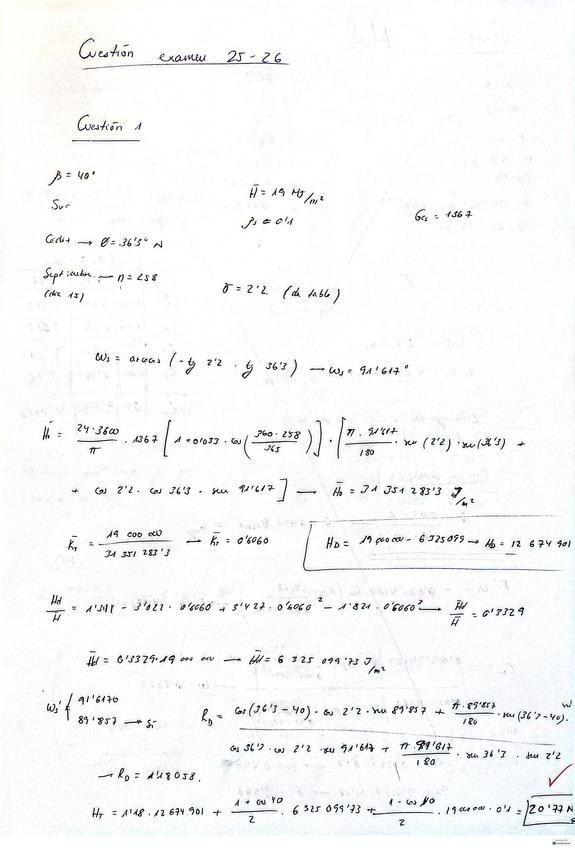 Cuestión examen 25-26
Cuestión 1
β = 40°
H̄ = 19 MJ/m²
Sur
ρs = 0'1
Gcs = 1367
→ Ø = 36'3° N
→ n = 258
(día 15)
δ = 2'2 (de tabla)
ωs = arccos (-tg 2'2 · tg 36'3) → ωs = 91'617°
H̄o = 24·3600/π · 1367 [1 + 0'033 · cos(360·258/365)] · [π·91'617/180 · sen (2'2) · sen(36'3) +
+ cos 2'2 · cos 36'3 · sen 91'617] → H̄o = 31 351 283'3 J/m²
K̄T = 19 000 000/31 351 283'3 → K̄T = 0'6060
HD = 19 000 000 - 6 325 099 → HD = 12 674 901
H̄d/H̄ = 1'311 - 3'022 · 0'6060 + 3'427 · 0'6060² - 1'821 · 0'6060³ → H̄d/H̄ = 0'3329
H̄d = 0'3329·19 000 000 → H̄d = 6 325 099'73 J/m²
ωs' { 91'6170
89'857 → Si
RD = cos(36'3-40) · cos 2'2 · sen 89'857 + π·89'857/180 · sen(36'3-40).
cos 36'3 · cos 2'2 · sen 91'617 + π·91'617/180 · sen 36'3 · sen 2'2
→ RD = 1'18058.
HT = 1'18 · 12 674 901 + 1+cos 40/2 · 6 325 099'73 + 1-cos 40/2 · 19 000 000 · 0'1 = 20'77